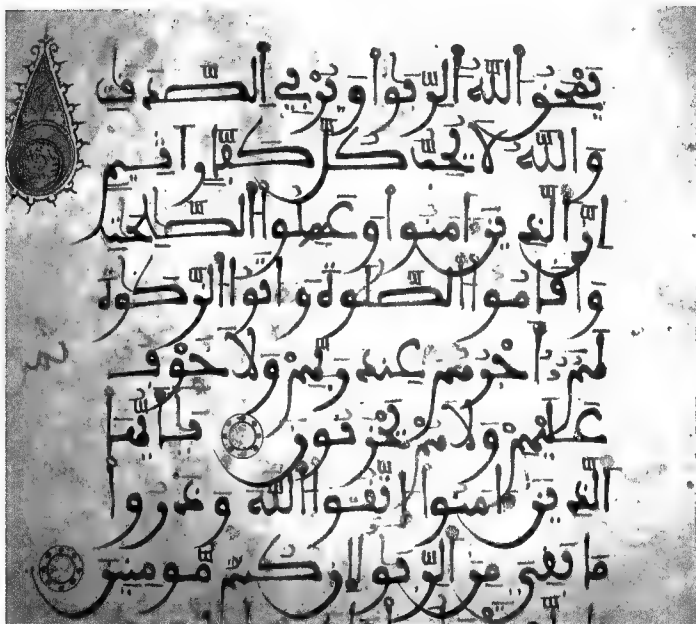 يمحق الله الربوا ويربي الصدقت
والله لا يحب كل كفار اثيم
ان الذين امنوا وعملوا الصلحت
واقاموا الصلوة واتوا الزكوة
لهم اجرهم عند ربهم ولا خوف
عليهم ولا هم يحزنون يايها
الذين امنوا اتقوا الله وذروا
ما بقي من الربوا ان كنتم مومنين